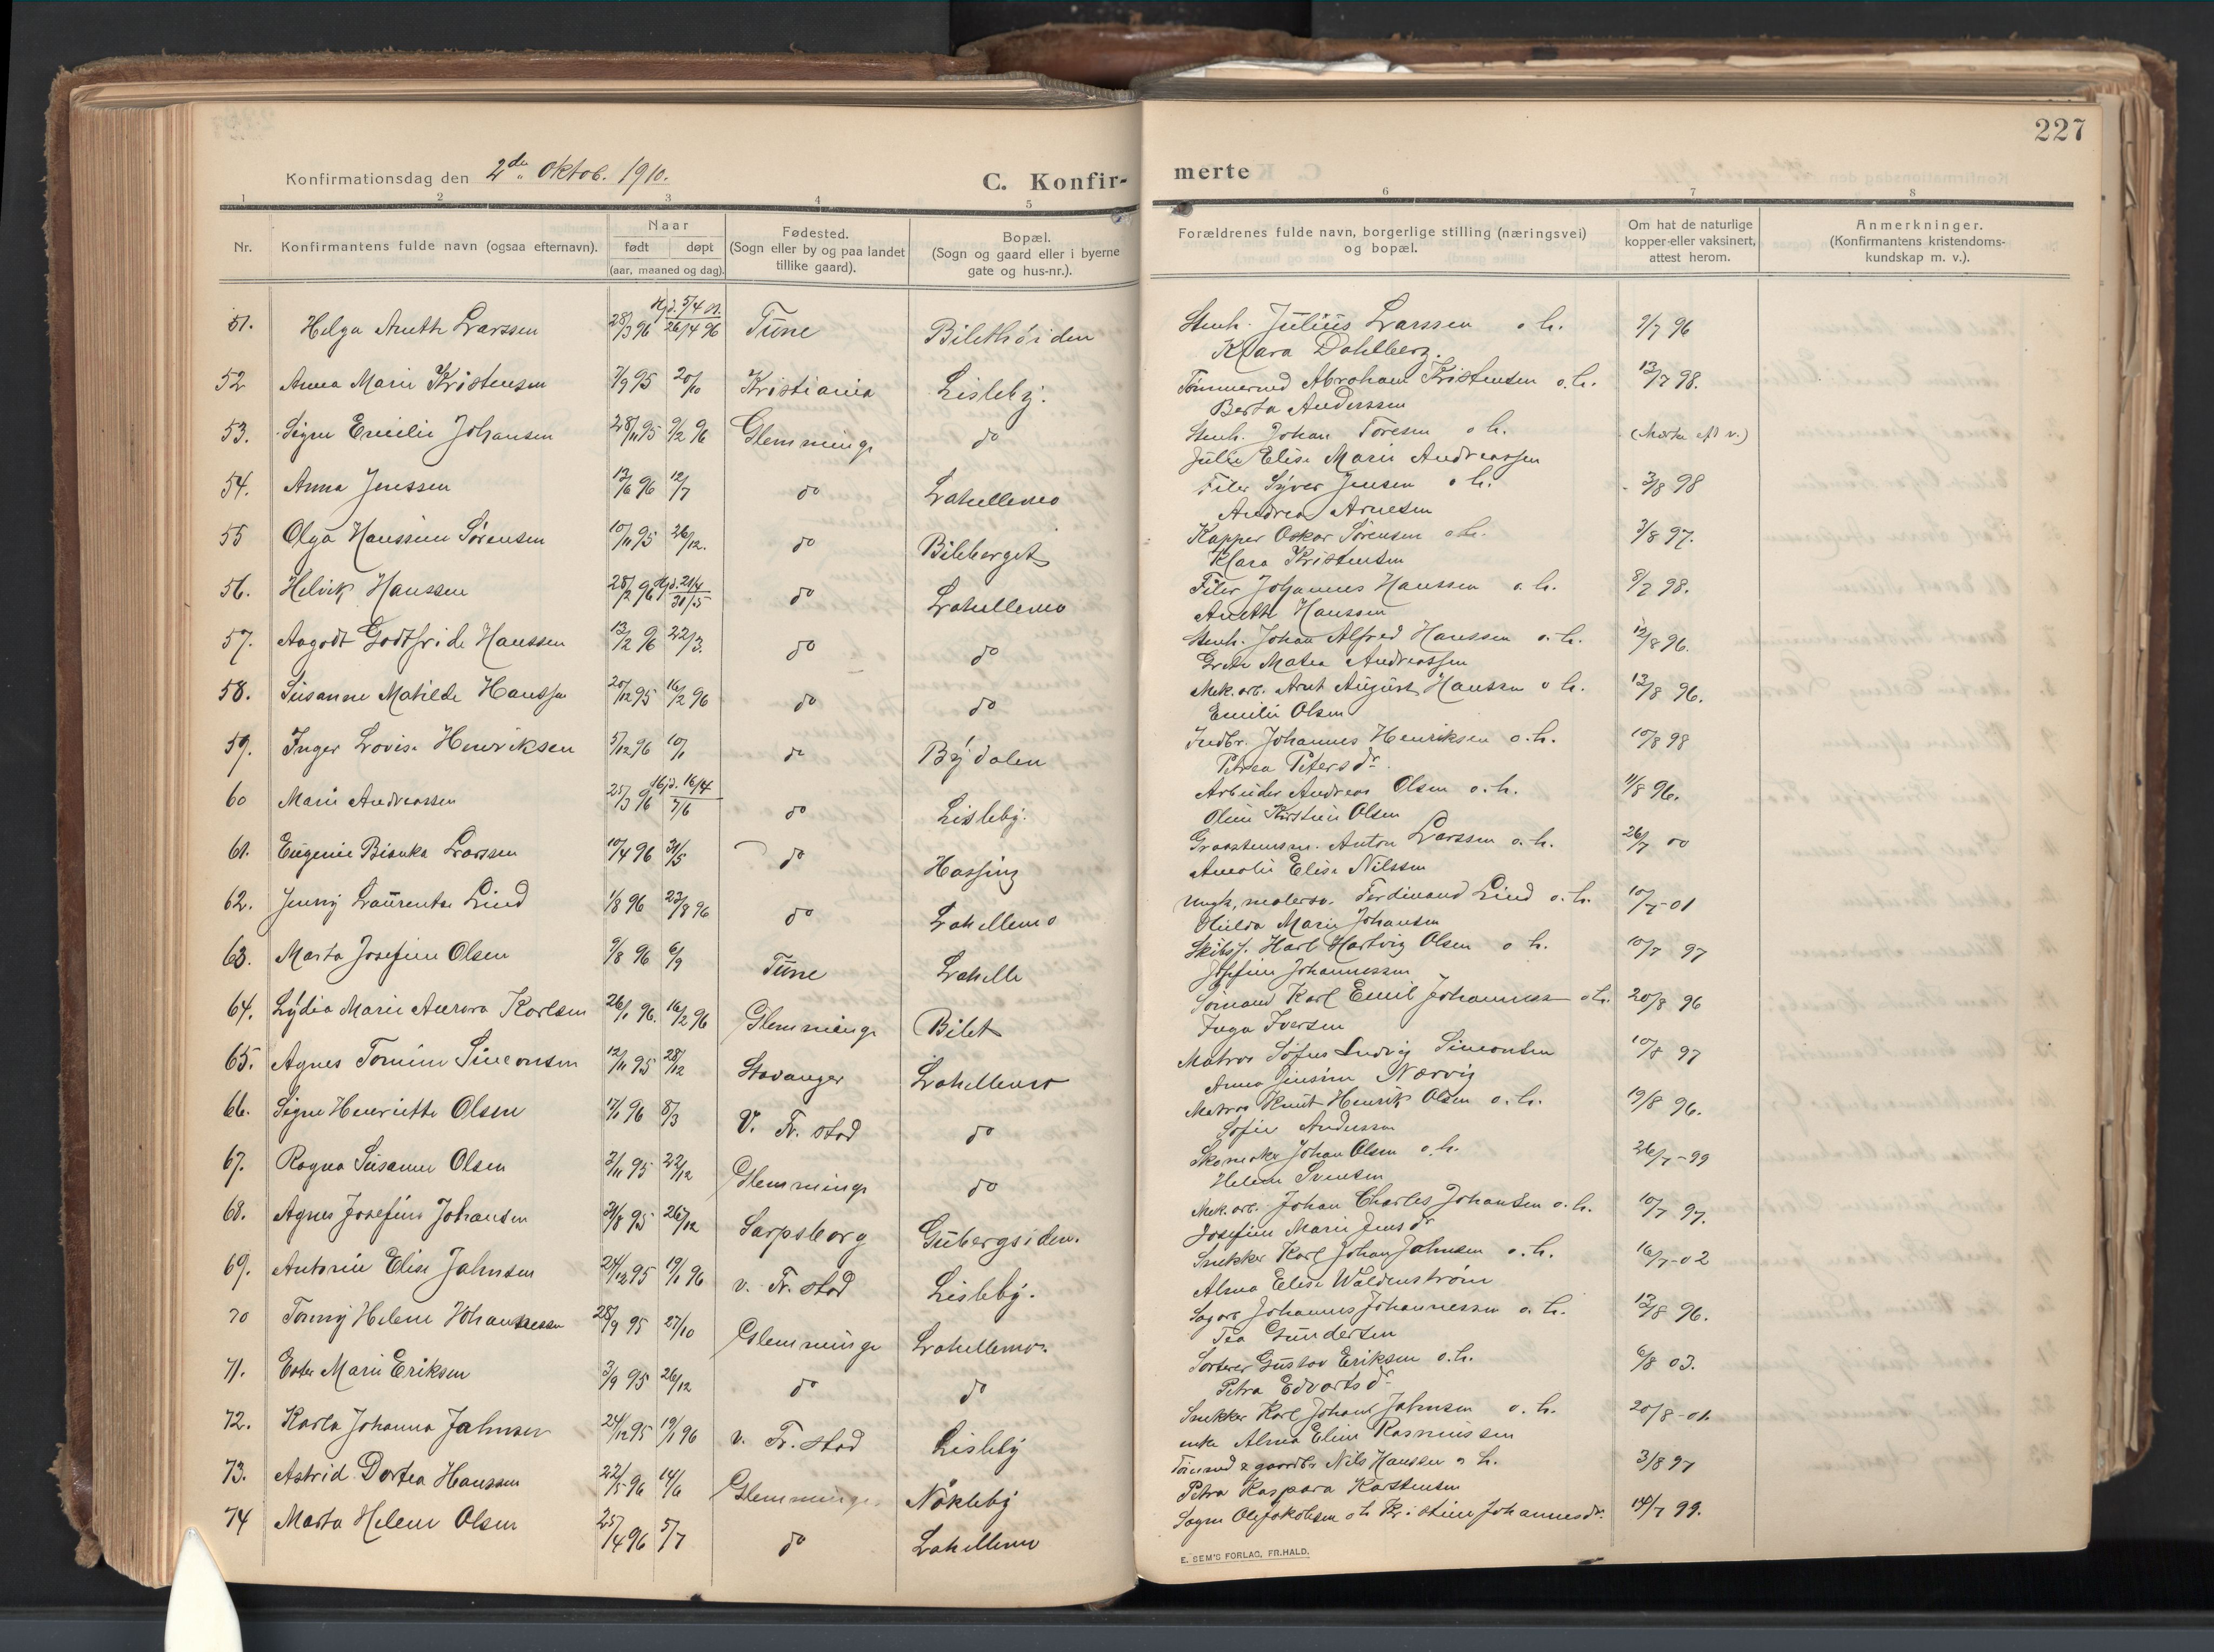 227
Konfirmationsdag den 2den Oktob. 1910.
C. Konfir-
merte
1 2 3 4 5 6 7 8
Nr.
Konfirmantens fulde navn (ogsaa efternavn).
Naar
født døpt
(aar, maaned og dag).
Fødested.
(Sogn eller by og paa landet
tillike gaard).
Bopæl.
(Sogn og gaard eller i byerne
gate og hus-nr.).
Forældrenes fulde navn, borgerlige stilling (næringsvei)
og bopæl.
Om hat de naturlige
kopper eller vaksinert,
attest herom.
Anmerkninger.
(Konfirmantens kristendoms-
kundskap m. v.).
51. Helga Anette Larssen 28/3 96 Hjd. 5/4 st. 26/4 96 Tune Bilethöiden Stenh. Julius Larssen o. h. 9/7 96
Klara Dahlberg.
52 Anna Marie Kristensen 7/9 95 20/10 Kristiania Lisleby. Tømmermd Abraham Kristensen o. h. 13/7 98.
Berta Anderssen
53. Signe Emilie Johansen 28/11 95 9/2 96 Glemminge do Stenh. Johan Toresen o h.
Julie Elise Marie Andreassen
54. Anna Jenssen 13/6 96 12/7 do Lahellemo Filer Syver Jensen o h. 3/8 98
Andrea Arnesen
55 Olga Hanssine Sørensen 10/11 95 26/12. do Bileberget Kapper Oskar Sørensen o h. 3/8 97.
Klara Kristensen
56. Helvik Hanssen 28/2 96 Hjd. 21/4 31/5 do Lahellemo Filer Johannes Hanssen o. h. 8/7 98.
Anette Hanssen
57. Aagodt Godtfride Hanssen 13/2 96 22/3. do do Stenh. Johan Alfred Hanssen o. h. 12/8 96.
Grete Matea Andreassen
58. Susanne Matilde Hanssen 20/12 95 16/2 96 do do Mek. arb. Arnt August Hanssen o h. 13/8 96.
Emilie Olsen
59. Inger Lovise Henriksen 5/12 96 10/1 do Bydalen Indbr. Johannes Henriksen o. h. 10/8 98
Petrea Petersdr.
60 Marie Andreassen 25/3 96 Hjd. 16/4 7/6 do Lisleby. Arbeider Andreas Olsen o. h. 11/8 96.
Oline Kirstine Olsen
61. Eugenie Bianka Larssen 10/4 96 31/5 do Hassing Graastensm. Anton Larssen o. h. 26/7 00
Amalie Elise Nilssen
62. Jenny Laurentse Lind 1/8 96 23/8 96 do Lahellemo Ferdinand Lind o. h. 10/7-01
Hilda Marie Johansen
63. Marta Josefine Olsen 9/8 96 6/9 Tune Lahelle Skibsf. Harl Hartvig Olsen o h. 10/7 97
Josefine Johannessen
64. Lydia Marie Aurora Karlsen 26/1 96. 16/2 96 Glemminge Bilet Sömand Karl Emil Johannessen o h. 20/8 96
Inga Iversen
65. Agnes Tomine Simonsen 12/11 95 28/12 Stavanger Lahellemo Matros Sofus Ludvig Simonsen 10/8 97
Anna Jensine Nærvig
66. Signe Henriette Olsen 17/1 96 8/3 V. Fr. stad do Matros Knut Henrik Olsen o. h. 19/8 96.
Sofie Andersen
67. Ragna Susanne Olsen 3/11 95 22/12 Glemminge do Skomaker Johan Olsen o. h. 26/7-99
Helene Svensen
68. Agnes Josefine Johansen 31/8 95 26/12 Sarpsborg Gubergsiden. Mek. arb. Johan Charles Johansen o. h. 10/7 97.
Josefine Marie Jensdr
69. Antonie Elise Jahnsen 24/12 95 19/1 96 v. Fr. stad Lisleby. Snekker Karl Johan Jahnsen o. h. 16/7-02
Alma Elise Waldenström
70 Tonny Helene Johannessen 28/9 95 27/10 Glemminge Lahellemo. Sagarb Johannes Johannessen o. h. 13/8 96.
Tea Gundersen
71. Ester Marie Eriksen 3/9 95 26/12 do do Sorterer Gustav Eriksen o. h. 6/8 03.
Petra Edvartsdr
72. Karla Johanna Jahnsen 24/12 95 19/1 96 v. Fr. stad Lisleby Snekker Karl Johan Jahnsen o. h. 20/8-01.
enke Alma Eline Rasmussen
73. Astrid Dortea Hanssen 22/5 96 14/6 Glemminge Nökleby Tömmermd & gaardbr Nils Hanssen o h. 3/8 97
Petra Kaspara Karstensen
74 Marta Helene Olsen 25/4 96 5/7 do Lahellemo Sagm Ole Jakobsen o h Kristine Johannesdr. 14/7 99.
E. SEM'S FORLAG, FR.HALD.